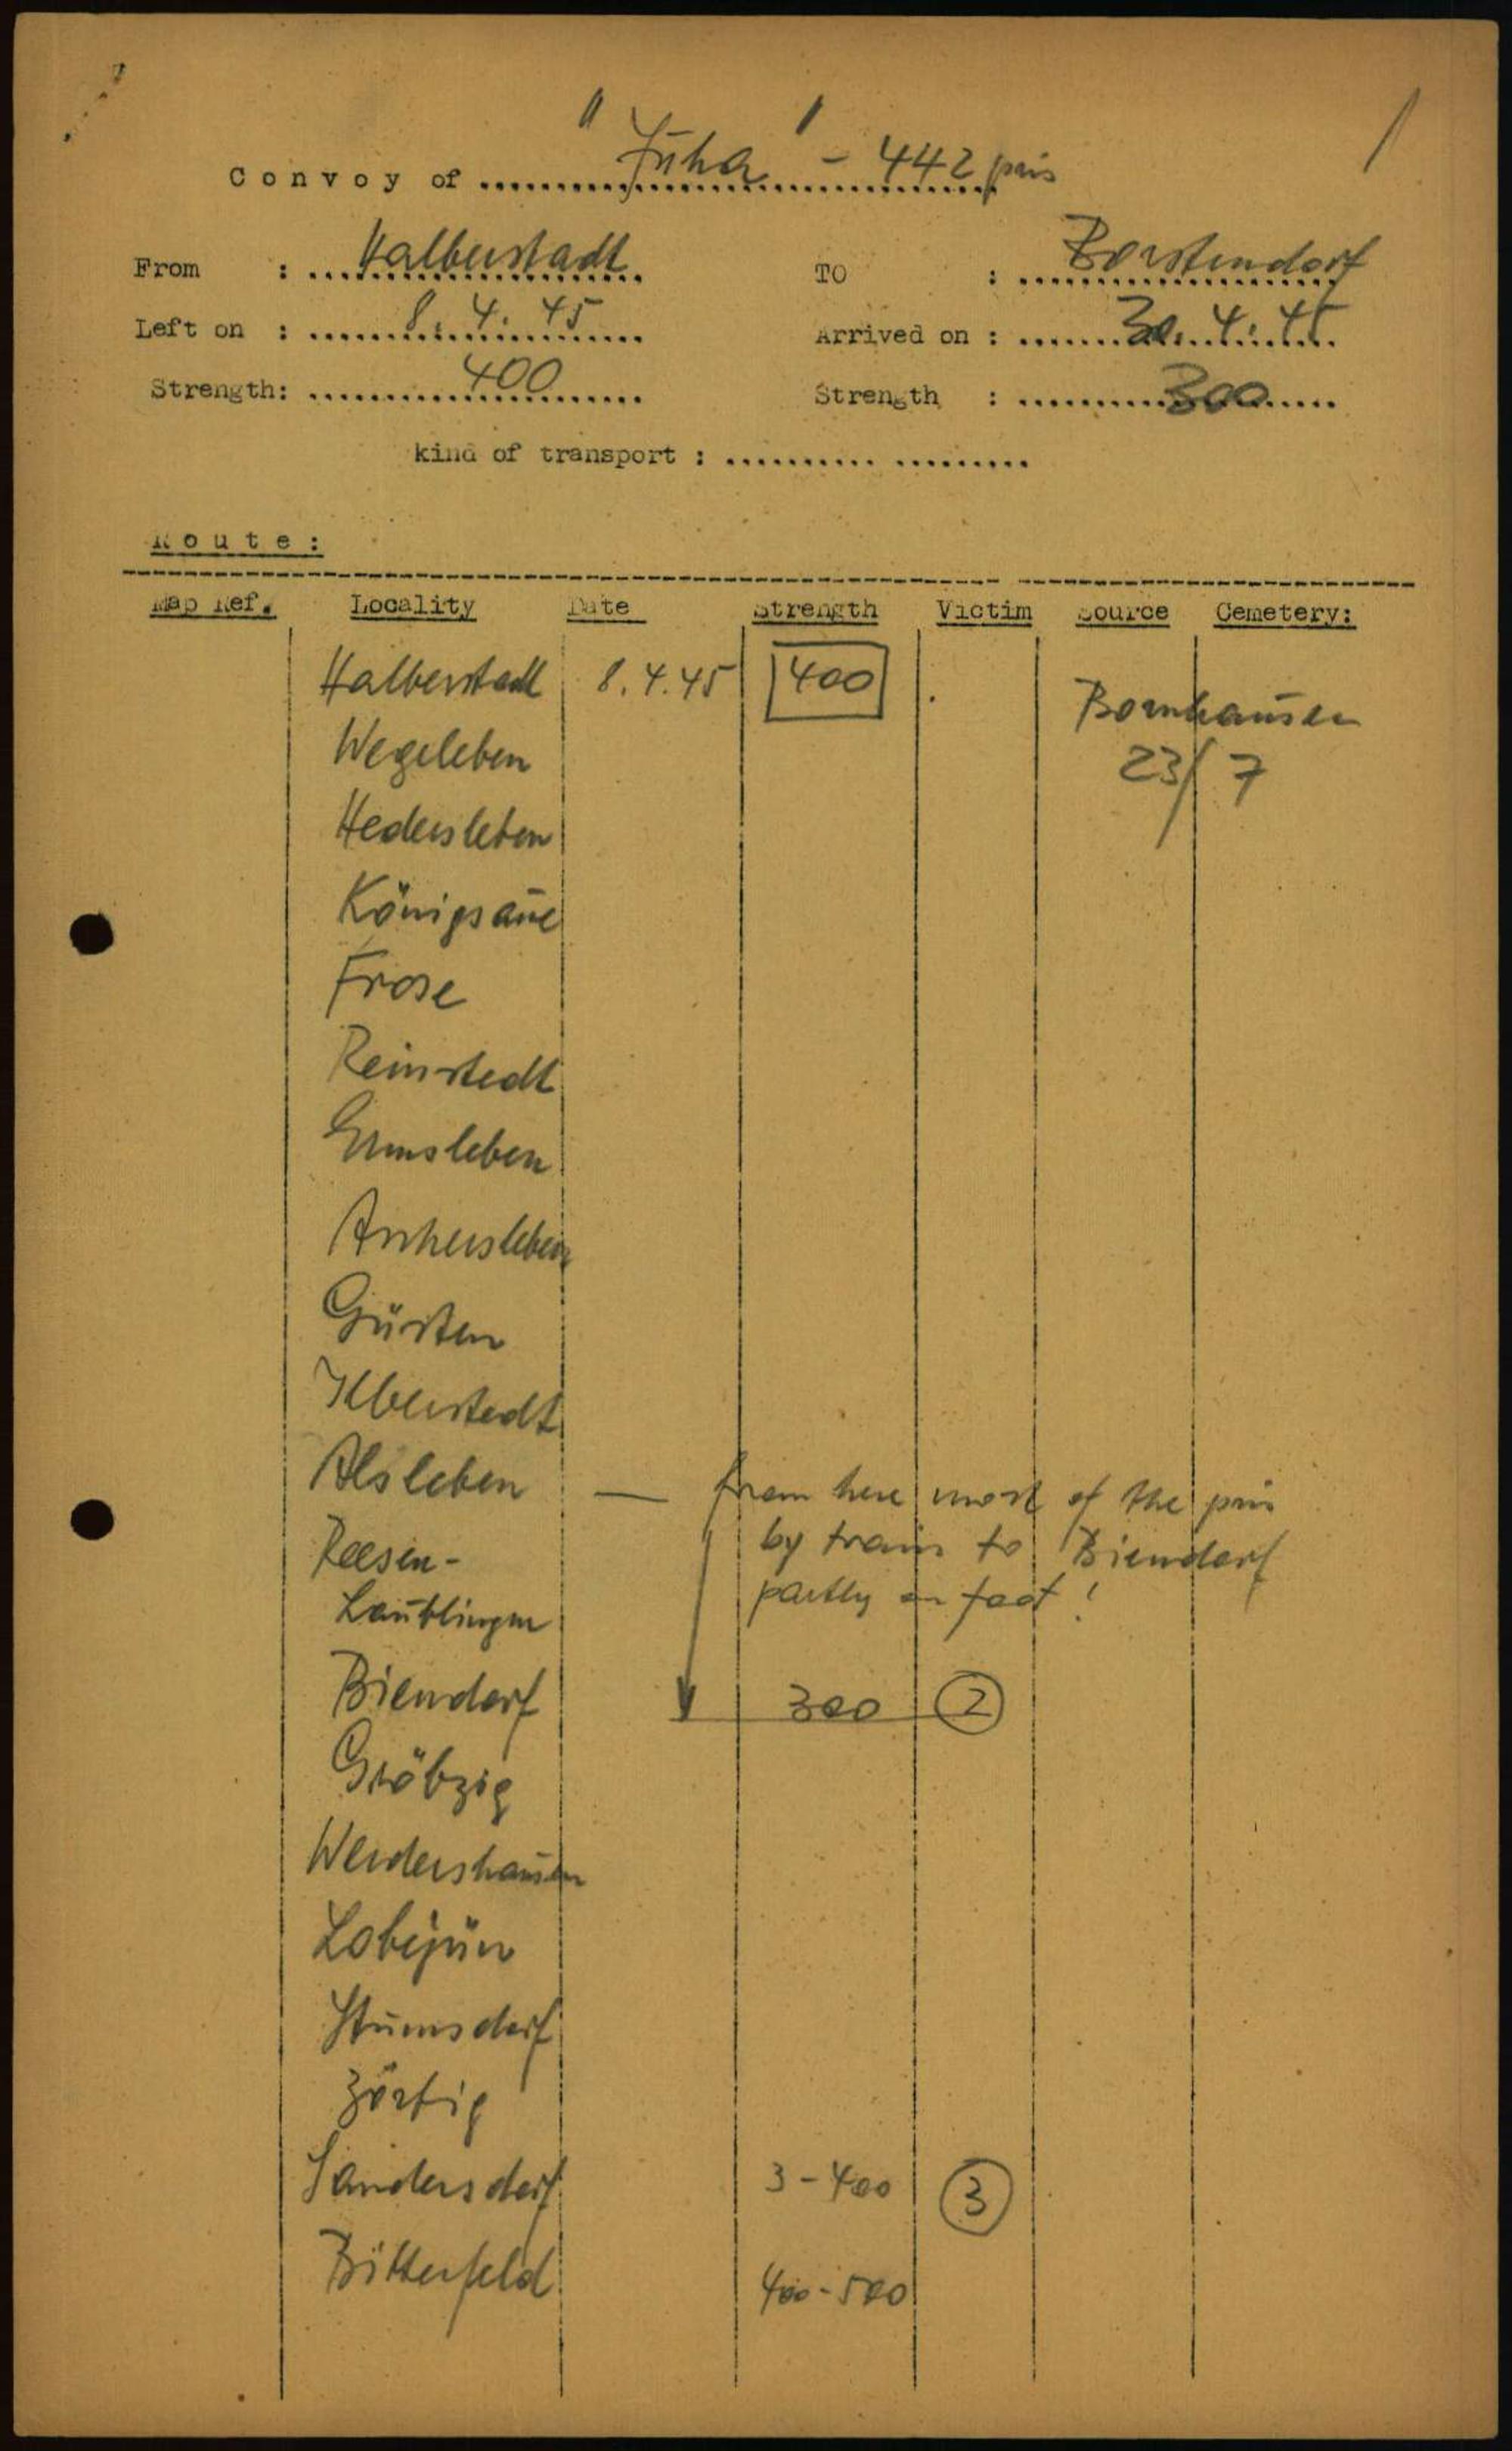 Convoy of ... "Jüha" - 442 pris
From : Halberstadt TO : Borstendorf
Left on : 8. 4. 45 Arrived on : 30. 4. 45
Strength: 400 Strength : 300
kind of transport : .......... .........
Route:
Map Ref. Locality Date Strength Victim Source Cemetery:
Halberstadt 8.4.45 400 Bornhausen
Wegeleben 23/7
Hedersleben
Königsaue
Frose
Reinstedt
Ermsleben
Aschersleben
Güsten
Ilberstedt
Alsleben — from here most of the pris
by train to Biendorf
Beesen-
partly on foot!
Laublingen
Biendorf 300 2
Gröbzig
Werdershausen
Lobejün
Stumsdorf
Zörbig
Sandersdorf 3-400 3
Bitterfeld 400-500